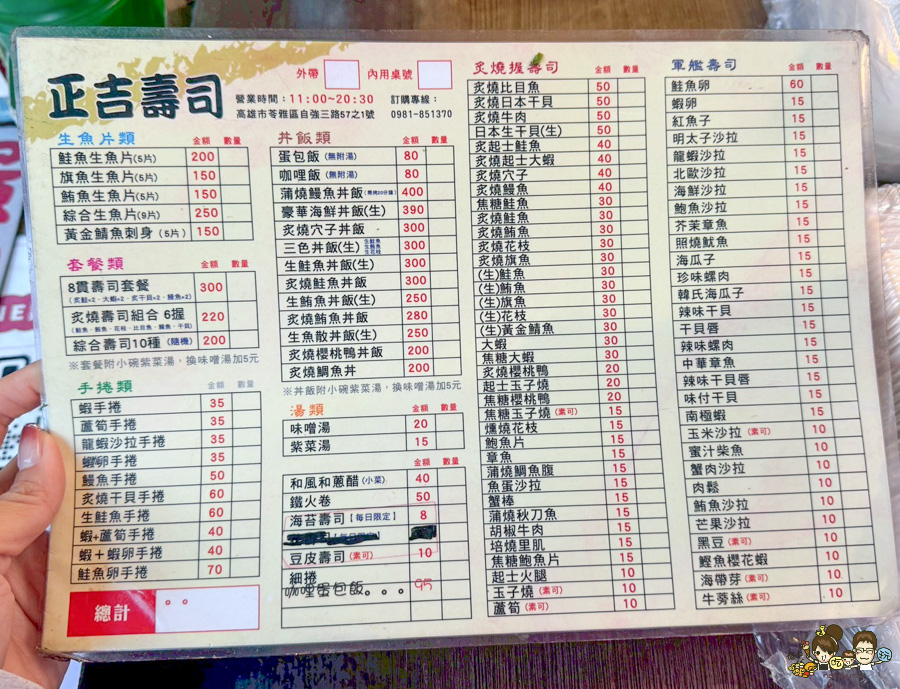 正吉壽司
外帶
內用桌號
營業時間：11:00~20:30
訂購專線：
高雄市苓雅區自強三路57之1號
0981-851370
生魚片類 金額 數量
鮭魚生魚片(5片) 200
旗魚生魚片(5片) 150
鮪魚生魚片(5片) 150
綜合生魚片(9片) 250
黃金鯖魚刺身(5片) 150
套餐類 金額 數量
8貫壽司套餐 300
(炙鮭×2、大蝦×2、炙干貝×2、鰻魚×2)
炙燒壽司組合 6握 220
(鮭魚、鮪魚、花枝、比目魚、鰻魚、干貝)
綜合壽司10種(隨機) 200
※套餐附小碗紫菜湯，換味噌湯加5元
手捲類 金額 數量
蝦手捲 35
蘆筍手捲 35
龍蝦沙拉手捲 35
蝦卵手捲 35
鰻魚手捲 50
炙燒干貝手捲 60
生鮭魚手捲 60
蝦+蘆筍手捲 40
蝦+蝦卵手捲 40
鮭魚卵手捲 70
總計
丼飯類 金額 數量
蛋包飯(無附湯) 80
咖哩飯(無附湯) 80
蒲燒鰻魚丼飯(需烤20分鐘) 400
豪華海鮮丼飯(生) 390
炙燒穴子丼飯 300
三色丼飯(生) 生鮭魚 生鮪魚 生花枝 300
生鮭魚丼飯(生) 300
炙燒鮭魚丼飯 300
生鮪魚丼飯(生) 250
炙燒鮪魚丼飯 280
生魚散丼飯(生) 250
炙燒櫻桃鴨丼飯 200
炙燒鯛魚丼 200
※丼飯附小碗紫菜湯，換味噌湯加5元
湯類 金額 數量
味噌湯 20
紫菜湯 15
金額 數量
和風和蔥醋(小菜) 40
鐵火卷 50
海苔壽司【每日限定】 8
豆皮壽司(素可) 10
細捲
咖哩蛋包飯。。。 95
炙燒握壽司 金額 數量
炙燒比目魚 50
炙燒日本干貝 50
炙燒牛肉 50
日本生干貝(生) 50
炙起士鮭魚 40
炙燒起士大蝦 40
炙燒穴子 40
炙燒鰻魚 40
焦糖鮭魚 30
炙燒鮭魚 30
炙燒鮪魚 30
炙燒花枝 30
炙燒旗魚 30
(生)鮭魚 30
(生)鮪魚 30
(生)旗魚 30
(生)花枝 30
(生)黃金鯖魚 30
大蝦 30
焦糖大蝦 30
炙燒櫻桃鴨 20
起士玉子燒 20
焦糖櫻桃鴨 20
焦糖玉子燒(素可) 15
燻燒花枝 15
鮑魚片 15
章魚 15
蒲燒鯛魚腹 15
魚蛋沙拉 15
蟹棒 15
蒲燒秋刀魚 15
胡椒牛肉 15
培燒里肌 15
焦糖鮑魚片 15
起士火腿 10
玉子燒(素可) 10
蘆筍(素可) 10
軍艦壽司 金額 數量
鮭魚卵 60
蝦卵 15
紅魚子 15
明太子沙拉 15
龍蝦沙拉 15
北歐沙拉 15
海鮮沙拉 15
鮑魚沙拉 15
芥茉章魚 15
照燒魷魚 15
海瓜子 15
珍味螺肉 15
韓氏海瓜子 15
辣味干貝 15
干貝唇 15
辣味螺肉 15
中華章魚 15
辣味干貝唇 15
味付干貝 15
南極蝦 15
玉米沙拉(素可) 10
蜜汁柴魚 10
蟹肉沙拉 10
肉鬆 10
鮪魚沙拉 10
芒果沙拉 10
黑豆(素可) 10
鰹魚櫻花蝦 10
海帶芽(素可) 10
牛蒡絲(素可) 10